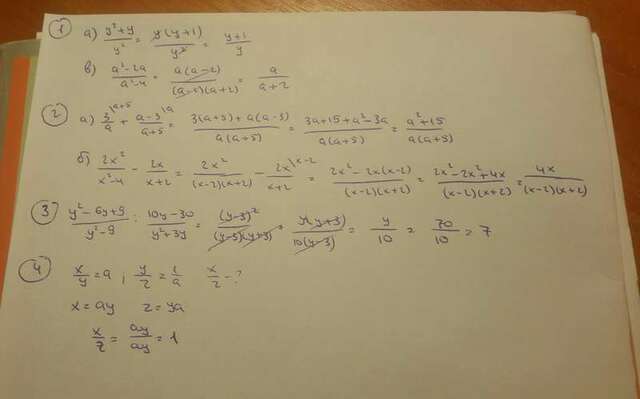 1 а) y²+y/y² = y(y+1)/y² = y+1/y
в) a²-2a/a²-4 = a(a-2)/(a-2)(a+2) = a/a+2
2 а) 3\a+5/a + a-3\a/a+5 = 3(a+5)+a(a-3)/a(a+5) = 3a+15+a²-3a/a(a+5) = a²+15/a(a+5)
б) 2x²/x²-4 - 2x/x+2 = 2x²/(x-2)(x+2) - 2x\x-2/x+2 = 2x²-2x(x-2)/(x-2)(x+2) = 2x²-2x²+4x/(x-2)(x+2) = 4x/(x-2)(x+2)
3 y²-6y+9/y²-9 : 10y-30/y²+3y = (y-3)²/(y-3)(y+3) · y(y+3)/10(y-3) = y/10 = 70/10 = 7
4 x/y = a ; y/z = 1/a x/z - ?
x = ay z = ya
x/z = ay/ay = 1